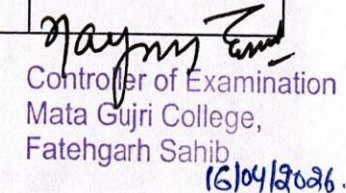 Controller of Examination
Mata Gujri College,
Fatehgarh Sahib
16/04/2026.